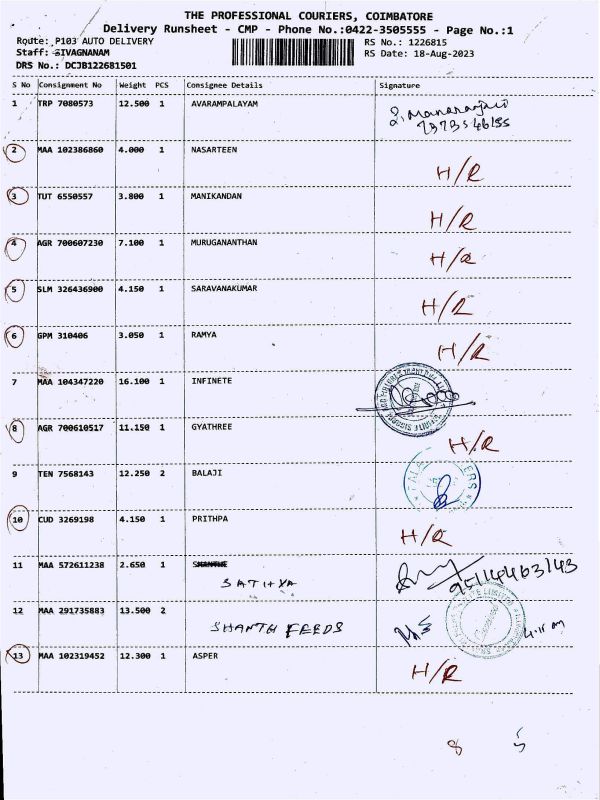 THE PROFESSIONAL COURIERS, COIMBATORE
Delivery Runsheet - CMP - Phone No.:0422-3505555 - Page No.:1
Route: P103 AUTO DELIVERY RS No.: 1226815
Staff: SIVAGNANAM RS Date: 18-Aug-2023
DRS No.: DCJB122681501
S No Consignment No Weight PCS Consignee Details Signature
1 TRP 7080573 12.500 1 AVARAMPALAYAM
2 MAA 102386860 4.000 1 NASARTEEN H/R
3 TUT 6550557 3.800 1 MANIKANDAN H/R
4 AGR 700607230 7.100 1 MURUGANANTHAN H/R
5 SLM 326436900 4.150 1 SARAVANAKUMAR H/R
6 GPM 310406 3.050 1 RAMYA H/R
7 MAA 104347220 16.100 1 INFINETE
8 AGR 700610517 11.150 1 GYATHREE H/R
9 TEN 7568143 12.250 2 BALAJI
10 CUD 3269198 4.150 1 PRITHPA H/R
11 MAA 572611238 2.650 1
SATHYA
12 MAA 291735883 13.500 2
SHANTH FEEDS
13 MAA 102319452 12.300 1 ASPER H/R
8 5